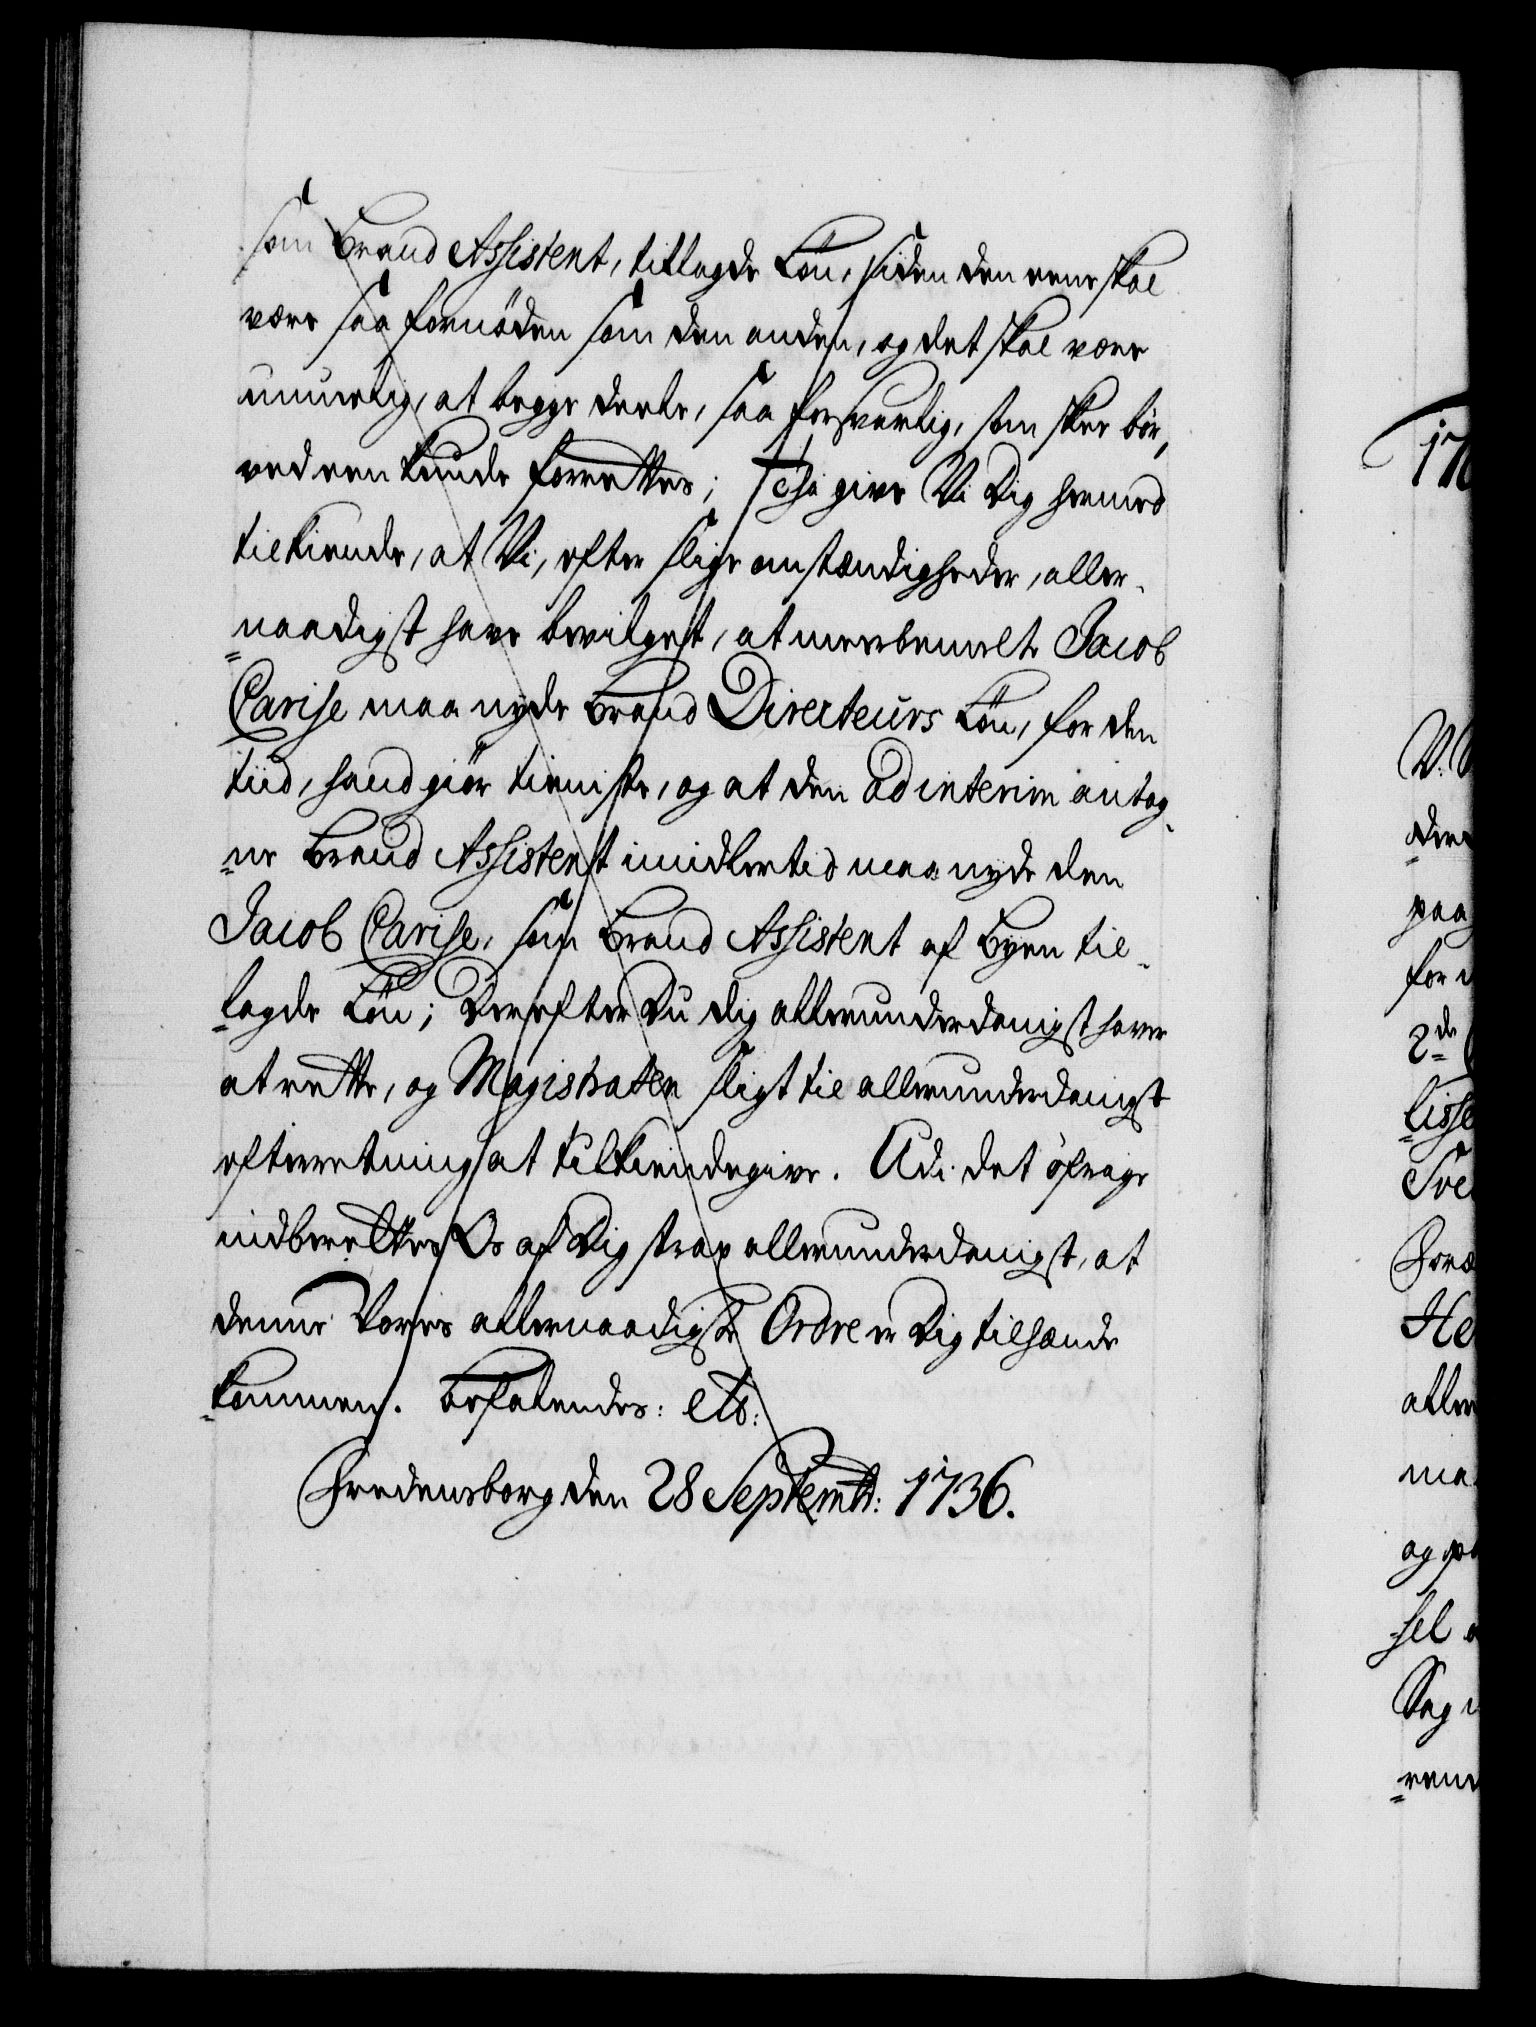 som Brand Assistent, tillagde Løn, siden den eene skal
være saa fornöden som den anden, og det skal være
umuelig, at begge deele, saa forsvarlig, som skee bör,
ved een kunde forrettes; Saa give Vi Dig hermed
tilkiende, at Vi, efter slige omstændigheder, aller-
naadigst have bevilget, at meerbemelte Jacob
Carise maa nyde Brand Directeurs Løn, for den
tiid, hand giör tieniste, og at den ad interim antag-
ne Brand Assistent imidlertid maa nyde den
Jacob Carise, som Brand Assistent af Byen til-
lagde Løn; Derefter Du dig allerunderdanigst haver
at rette, og Magistraten sligt til allerunderdanigst
efterretning at tilkiendegive. Udi det öfrige
indberettes Os af Dig strax allerunderdanigst, at
denne Vores allernaadigste Ordre er Dig tilhænde
kommen. Befalendes: etc:
Fredensborg den 28 Septembr: 1736.